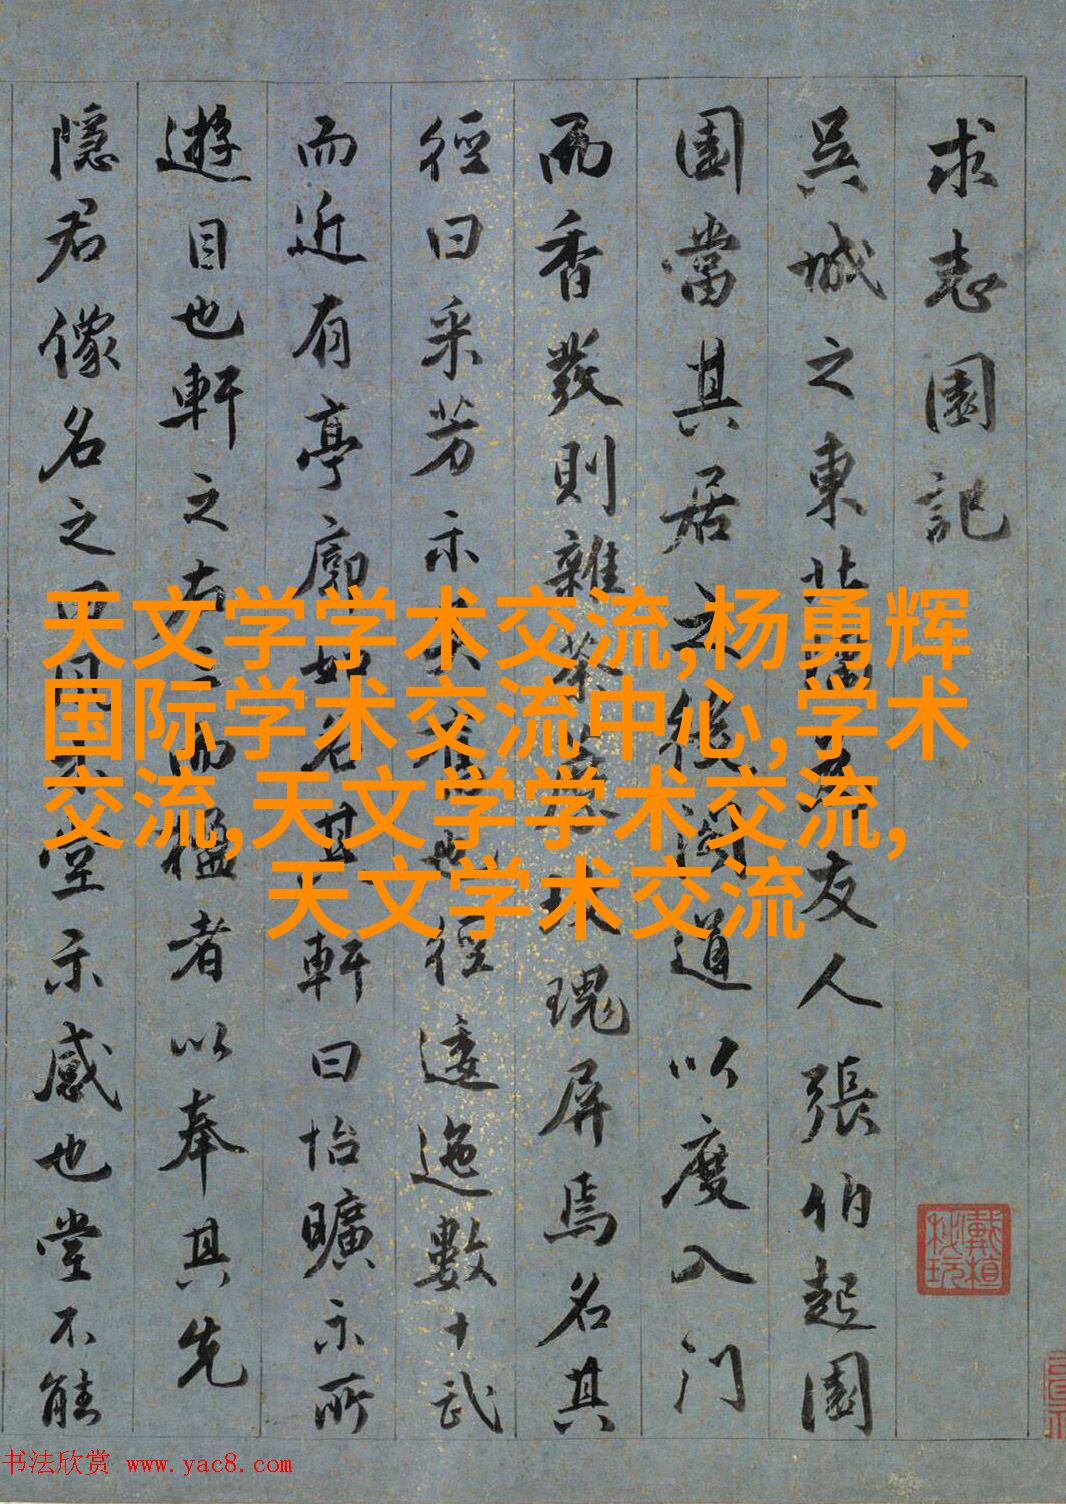 求志園記
吳城之東北友人張伯起園
園當其居之後道以度入門
而香發則雜瑰屏焉名其
徑曰采芳示也徑逶迤數十武
而近有亭廓如名其軒曰怡曠示所
遊目也軒之右而楹者以奉其先
隱君像名之曰堂示感也堂不能
天文学学术交流,杨勇辉
国际学术交流中心,学术
交流,天文学学术交流,
天文学术交流
书法欣赏 www.yac8.com